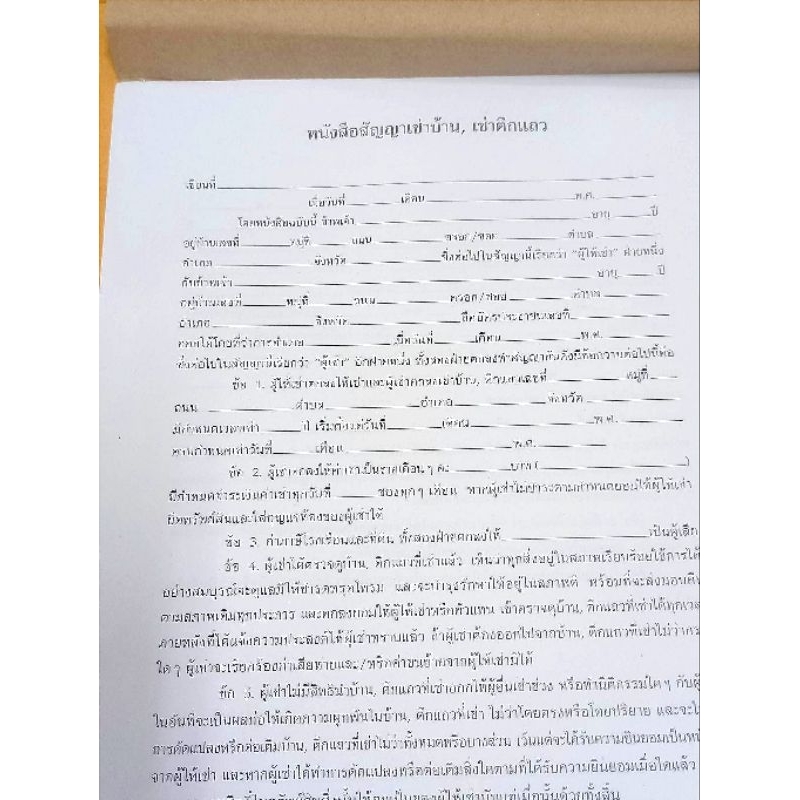 หนังสือสัญญาเช่าบ้าน, เช่าตึกแถว
เขียนที่
เมื่อวันที่ เดือน พ.ศ.
โดยหนังสือฉบับนี้ ข้าพเจ้า อายุ ปี
อยู่บ้านเลขที่ หมู่ที่ ถนน ตรอก/ซอย ตำบล
อำเภอ จังหวัด ซึ่งต่อไปในสัญญานี้เรียกว่า "ผู้ให้เช่า" ฝ่ายหนึ่ง
กับข้าพเจ้า อายุ ปี
อยู่บ้านเลขที่ หมู่ที่ ถนน ตรอก/ซอย ตำบล
อำเภอ จังหวัด ถือบัตรประชาชนเลขที่
ออกให้โดยที่ว่าการอำเภอ เมื่อวันที่ เดือน พ.ศ.
ซึ่งต่อไปในสัญญานี้เรียกว่า "ผู้เช่า" อีกฝ่ายหนึ่ง ทั้งสองฝ่ายตกลงทำสัญญากันดังมีข้อความต่อไปนี้คือ
ข้อ 1. ผู้ให้เช่าตกลงให้เช่าและผู้เช่าตกลงเช่าบ้าน, ตึกแถวเลขที่ หมู่ที่
ถนน ตำบล อำเภอ จังหวัด
มีกำหนดเวลาเช่า ปี เริ่มตั้งแต่วันที่ เดือน พ.ศ.
ครบกำหนดเช่าวันที่ เดือน พ.ศ.
ข้อ 2. ผู้เช่าตกลงให้ค่าเช่าเป็นรายเดือนๆ ละ บาท ( )
มีกำหนดชำระเงินค่าเช่าทุกวันที่ ของทุกๆ เดือน หากผู้เช่าไม่ชำระตามกำหนดยอมให้ผู้ให้เช่า
ยึดทรัพย์สินและใส่กุญแจห้องของผู้เช่าได้
ข้อ 3. ค่าภาษีโรงเรือนและที่ดิน ทั้งสองฝ่ายตกลงให้ เป็นผู้เสีย
ข้อ 4. ผู้เช่าได้ตรวจดูบ้าน, ตึกแถวที่เช่าแล้ว เห็นว่าทุกสิ่งอยู่ในสภาพเรียบร้อยใช้การได้
อย่างสมบูรณ์จะดูแลมิให้ชำรุดทรุดโทรม และจะบำรุงรักษาให้อยู่ในสภาพดี พร้อมที่จะส่งมอบคืน
ตามสภาพเดิมทุกประการ และตกลงยอมให้ผู้ให้เช่าหรือตัวแทน เข้าตรวจดูบ้าน, ตึกแถวที่เช่าได้ทุกเวลา
ภายหลังที่ได้แจ้งความประสงค์ให้ผู้เช่าทราบแล้ว ถ้าผู้เช่าต้องออกไปจากบ้าน, ตึกแถวที่เช่าไม่ว่ากร
ใดๆ ผู้เช่าจะเรียกร้องค่าเสียหายและ/หรือค่าขนย้ายจากผู้ให้เช่ามิได้
ข้อ 5. ผู้เช่าไม่มีสิทธินำบ้าน, ตึกแถวที่เช่าออกให้ผู้อื่นเช่าช่วง หรือทำนิติกรรมใดๆ กับผู้
ในอันที่จะเป็นผลก่อให้เกิดความผูกพันในบ้าน, ตึกแถวที่เช่า ไม่ว่าโดยตรงหรือโดยปริยาย และจะไ
การดัดแปลงหรือต่อเติมบ้าน, ตึกแถวที่เช่าไม่ว่าทั้งหมดหรือบางส่วน เว้นแต่จะได้รับความยินยอมเป็นหนั
จากผู้ให้เช่า และหากผู้เช่าได้ทำการดัดแปลงหรือต่อเติมสิ่งใดตามที่ได้รับความยินยอมเมื่อใดแล้ว
ให้ ของผู้ให้เช่านับแต่เมื่อนั้นด้วยทั้งสิ้น